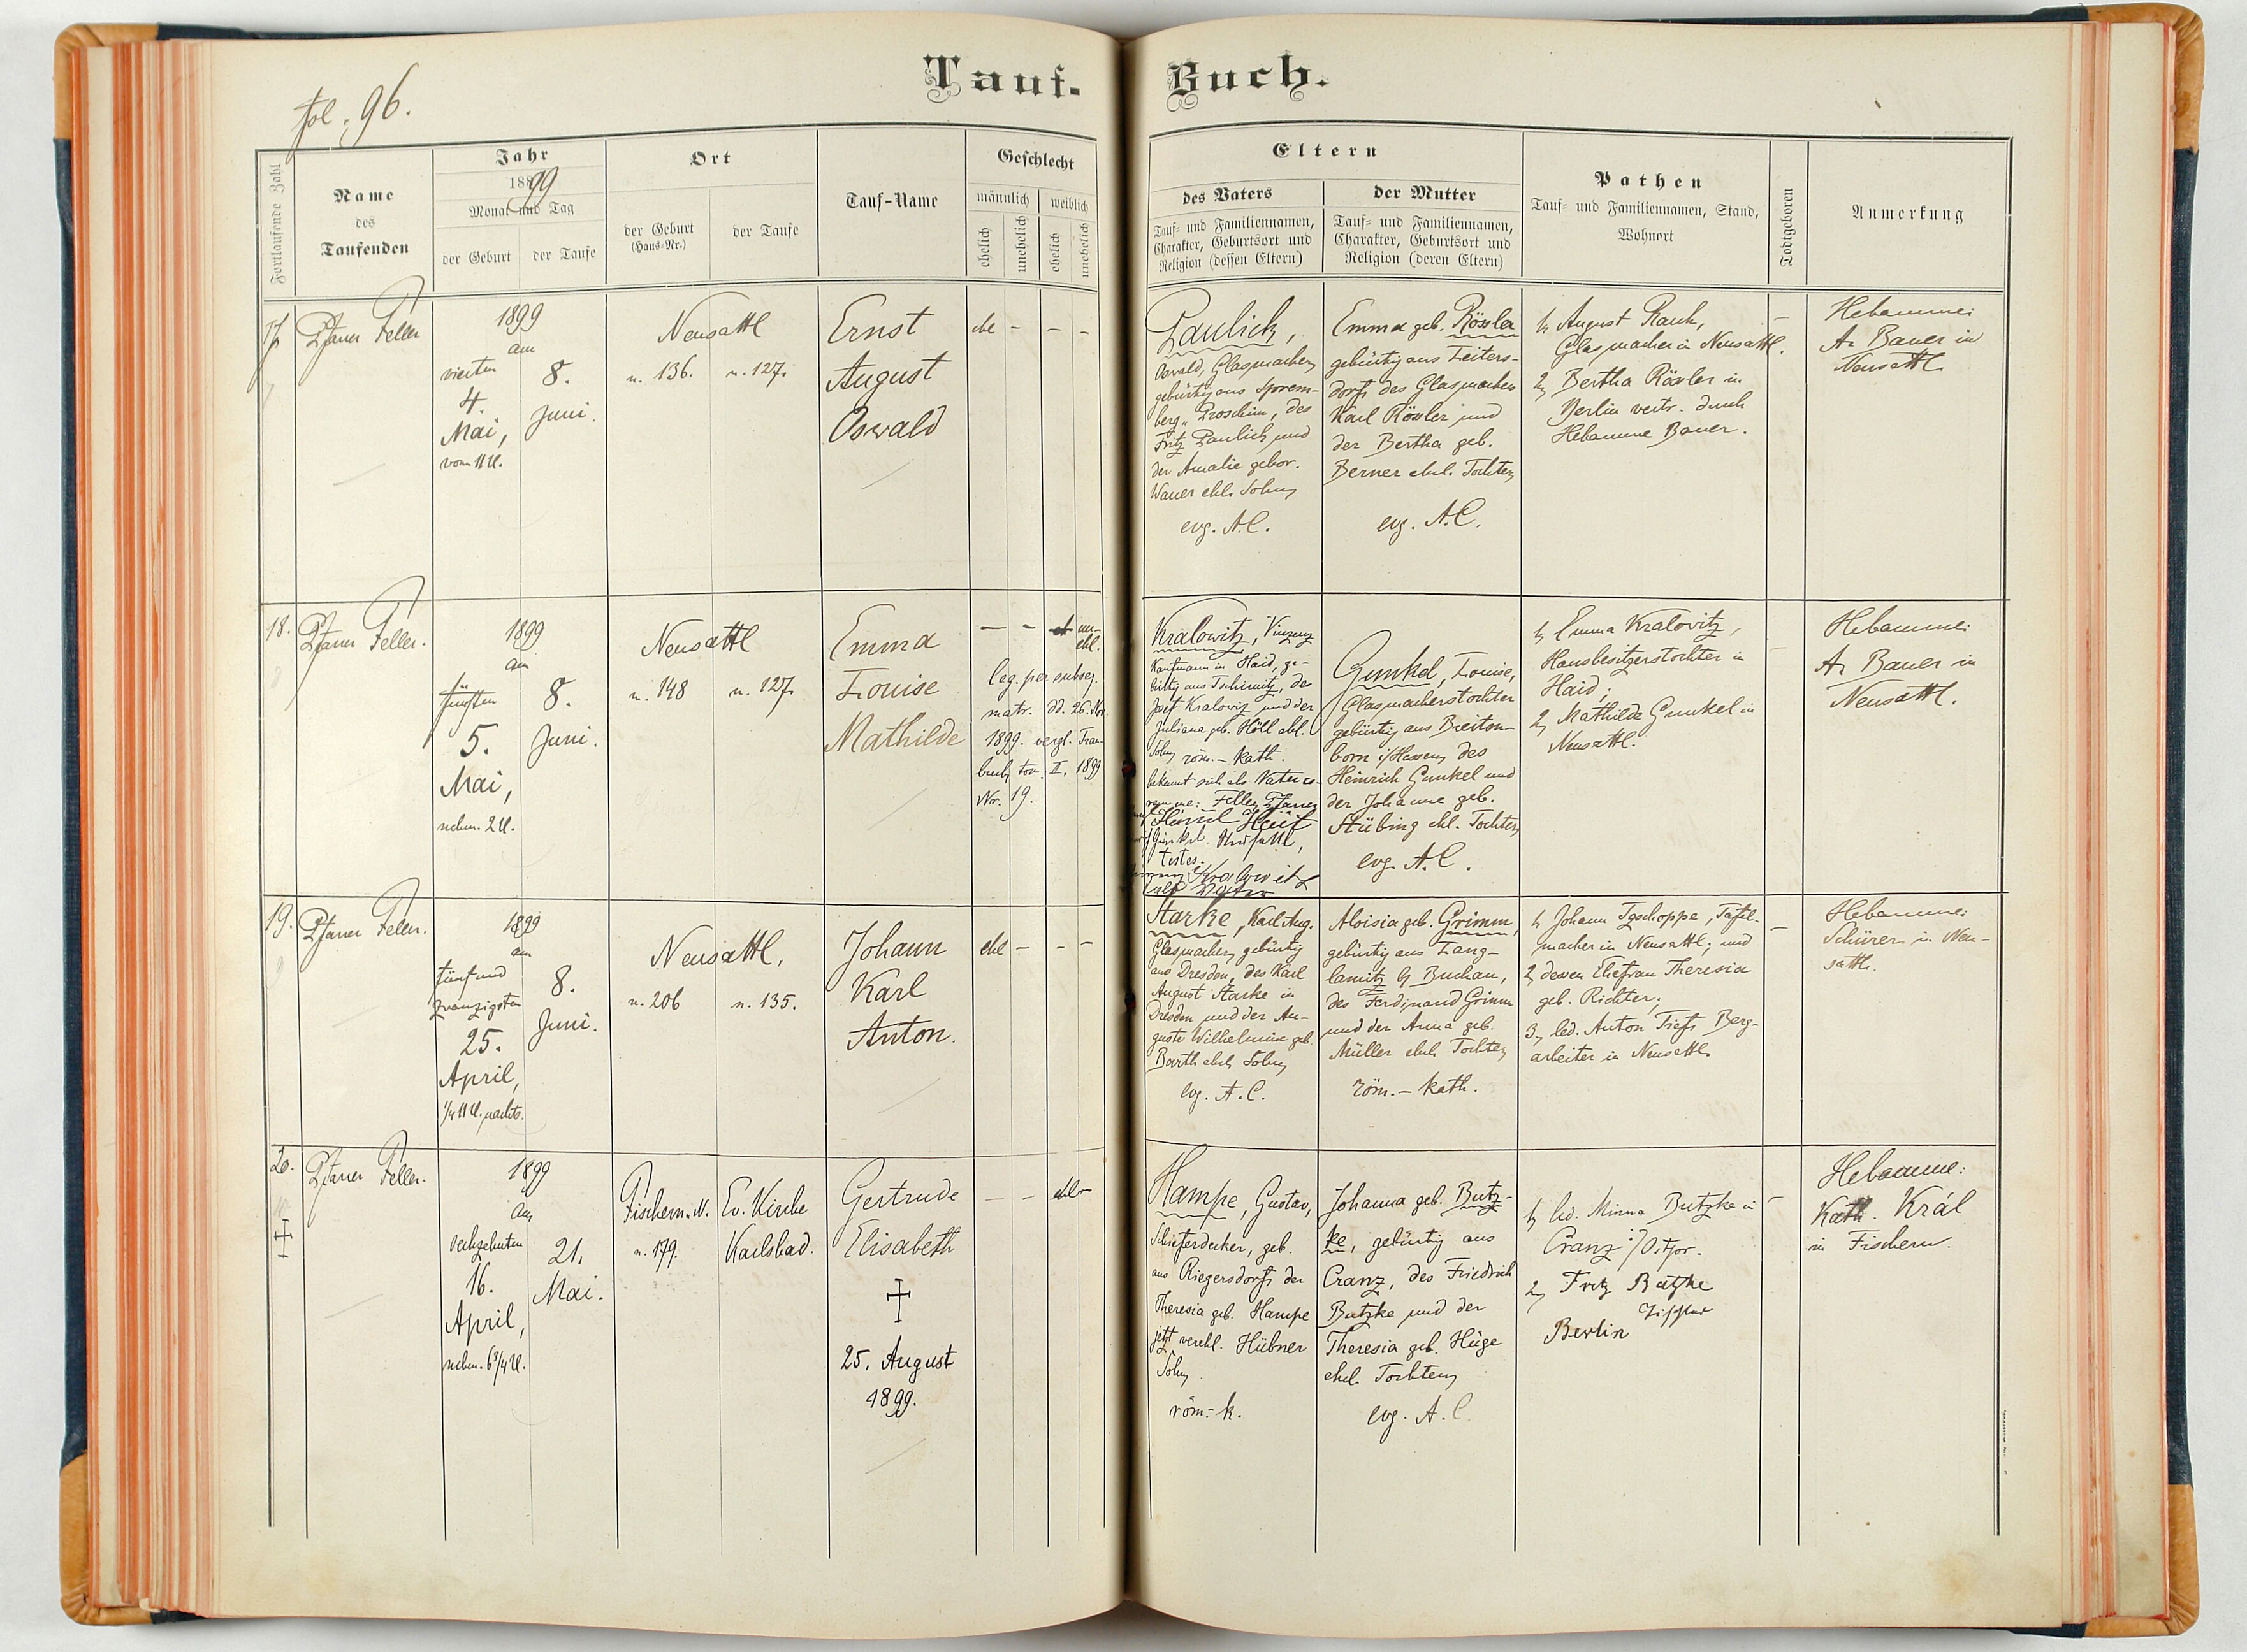 fol. 96.
Tauf-Buch.
Fortlaufende Zahl
Name
des
Taufenden
Jahr
18899
Monat und Tag
der Geburt
der Taufe
Ort
der Geburt
(Haus-Nr.)
der Taufe
Tauf-Name
Geschlecht
männlich
weiblich
ehelich
unehelich
ehelich
unehelich
Eltern
des Vaters
Tauf- und Familiennamen,
Charakter, Geburtsort und
Religion (dessen Eltern)
der Mutter
Tauf- und Familiennamen,
Charakter, Geburtsort und
Religion (deren Eltern)
Pathen
Tauf- und Familiennamen, Stand,
Wohnort
Todtgeboren
Anmerkung
17
Pfarrer Feller
1899
am
vierten
4.
Mai,
vorm 11 U.
8.
Juni.
Neusattl
n. 136.
n. 127.
Ernst
August
Oswald
ehl - - -
Paulick,
Oswald, Glasmacher,
gebürtig aus Sprem-
berg, Proschim, des
Fritz Paulick und
der Amalie gebor.
Wauer ehl. Sohn,
evg. A.C.
Emma geb. Rössler
gebürtig aus Leiters-
dorf, des Glasmachers
Karl Rössler und
der Bertha geb.
Berner ehel. Tochter,
evg. A.C.
1, August Rauh,
Glasmacher in Neusattl.
2, Bertha Rössler in
Berlin vertr. durch
Hebamme Bauer.
-
Hebamme:
A. Bauer in
Neusattl.
18.
Pfarrer Feller.
1899
am
fünften
5.
Mai,
nchm. 2 U.
8.
Juni.
Neusattl
n. 148
n. 127.
Emma
Louise
Mathilde
- - un-
ehl.
leg. per subseq.
matr. dd. 26. Nov.
1899. vergl. Trau-
buch tom. II. 1899
Nr. 19.
Kralowitz, Vinzenz
Kaufmann in Haid, ge-
bürtig aus Tschimitz, des
Josef Kralowitz und der
Juliana geb. Höll ehl.
Sohn, röm.-kath.
bekennt sich als Vater
Feller, Pfarrer
testes.
Kralowitz
als Vater
Gunkel, Louise,
Glasmacherstochter
gebürtig aus Breiten-
born i/Hessen, des
Heinrich Gunkel und
der Johanne geb.
Stübing ehl. Tochter,
evg. A.C.
1, Emma Kralovitz,
Hausbesitzerstochter in
Haid;
2, Mathilde Gunkel in
Neusattl.
-
Hebamme:
A. Bauer in
Neusattl.
19.
Pfarrer Feller.
1899
am
fünfund
zwanzigsten
25.
April,
1/4 11 U. nachts.
8.
Juni.
Neusattl,
n. 206
n. 135.
Johann
Karl
Anton.
ehl - - -
Starke, Karl Aug.
Glasmacher, gebürtig
aus Dresden, des Karl
August Starke in
Dresden und der Au-
guste Wilhelmine geb.
Barth ehel. Sohn,
evg. A.C.
Aloisia geb. Grimm,
gebürtig aus Lang-
lamitz b/ Buchau,
des Ferdinand Grimm
und der Anna geb.
Müller ehel. Tochter,
röm.-kath.
1, Johann Tzschoppe, Tafel-
macher in Neusattl; und
2, dessen Ehefrau Theresia
geb. Richter;
3, led. Anton Tiefs Berg-
arbeiter in Neusattl.
-
Hebamme:
Schürer in Neu-
sattl.
20.
Pfarrer Feller.
1899
am
sechzehnten
16.
April,
nchm. 6 3/4 U.
21.
Mai.
Fischern. N.
n. 179.
Ev. Kirche
Karlsbad.
Gertrude
Elisabeth
25. August
1899.
- - ehl -
Hampe, Gustav,
Schieferdecker, geb.
aus Riegersdorf, der
Theresia geb. Hampe
jetzt verehl. Hübner
Sohn,
röm.-k.
Johanna geb. Butz-
ke, gebürtig aus
Cranz, des Friedrich
Butzke und der
Theresia geb. Hüge
ehel. Tochter,
evg. A.C.
1, led. Minna Butzke in
Cranz i/Ostpr.
2, Fritz Butzke
Tischler
Berlin
-
Hebamme:
Kath. Král
in Fischern.